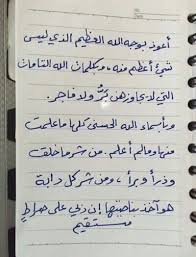 أعوذ بوجه الله العظيم الذي ليس
شئ أعظم منه ، وبكلمات الله التامات
التي لا يجاوزهن برٌ ولا فاجر
وبأسماء الله الحسنى كلها ما علمت
منها وما لم أعلم . من شر ما خلق
وذرأ وبرأ ، ومن شر كل دابة
هو آخذ بناصيتها إن ربي على صراط
مستقيم